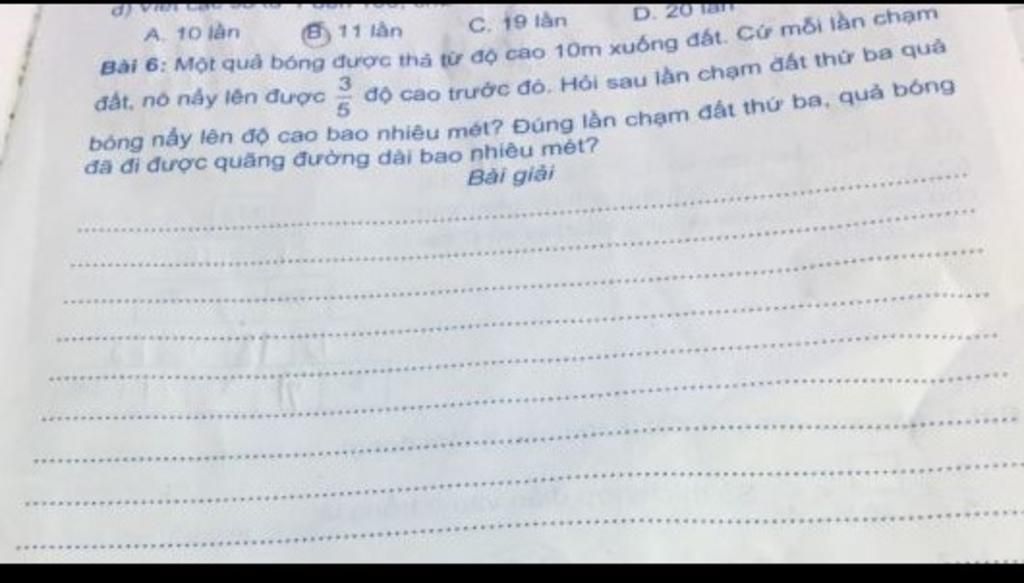 A. 10 lần B. 11 lần C. 19 lần D. 20 lần
Bài 6: Một quả bóng được thả từ độ cao 10m xuống đất. Cứ mỗi lần chạm
đất, nó nẩy lên được 3/5 độ cao trước đó. Hỏi sau lần chạm đất thứ ba quả
bóng nẩy lên độ cao bao nhiêu mét? Đúng lần chạm đất thứ ba, quả bóng
đã đi được quãng đường dài bao nhiêu mét?
Bài giải